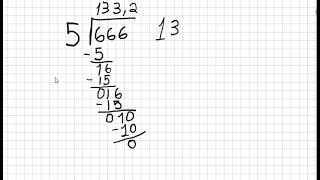 133,2
5 666 13
-5
16
-15
016
-15
010
-10
0